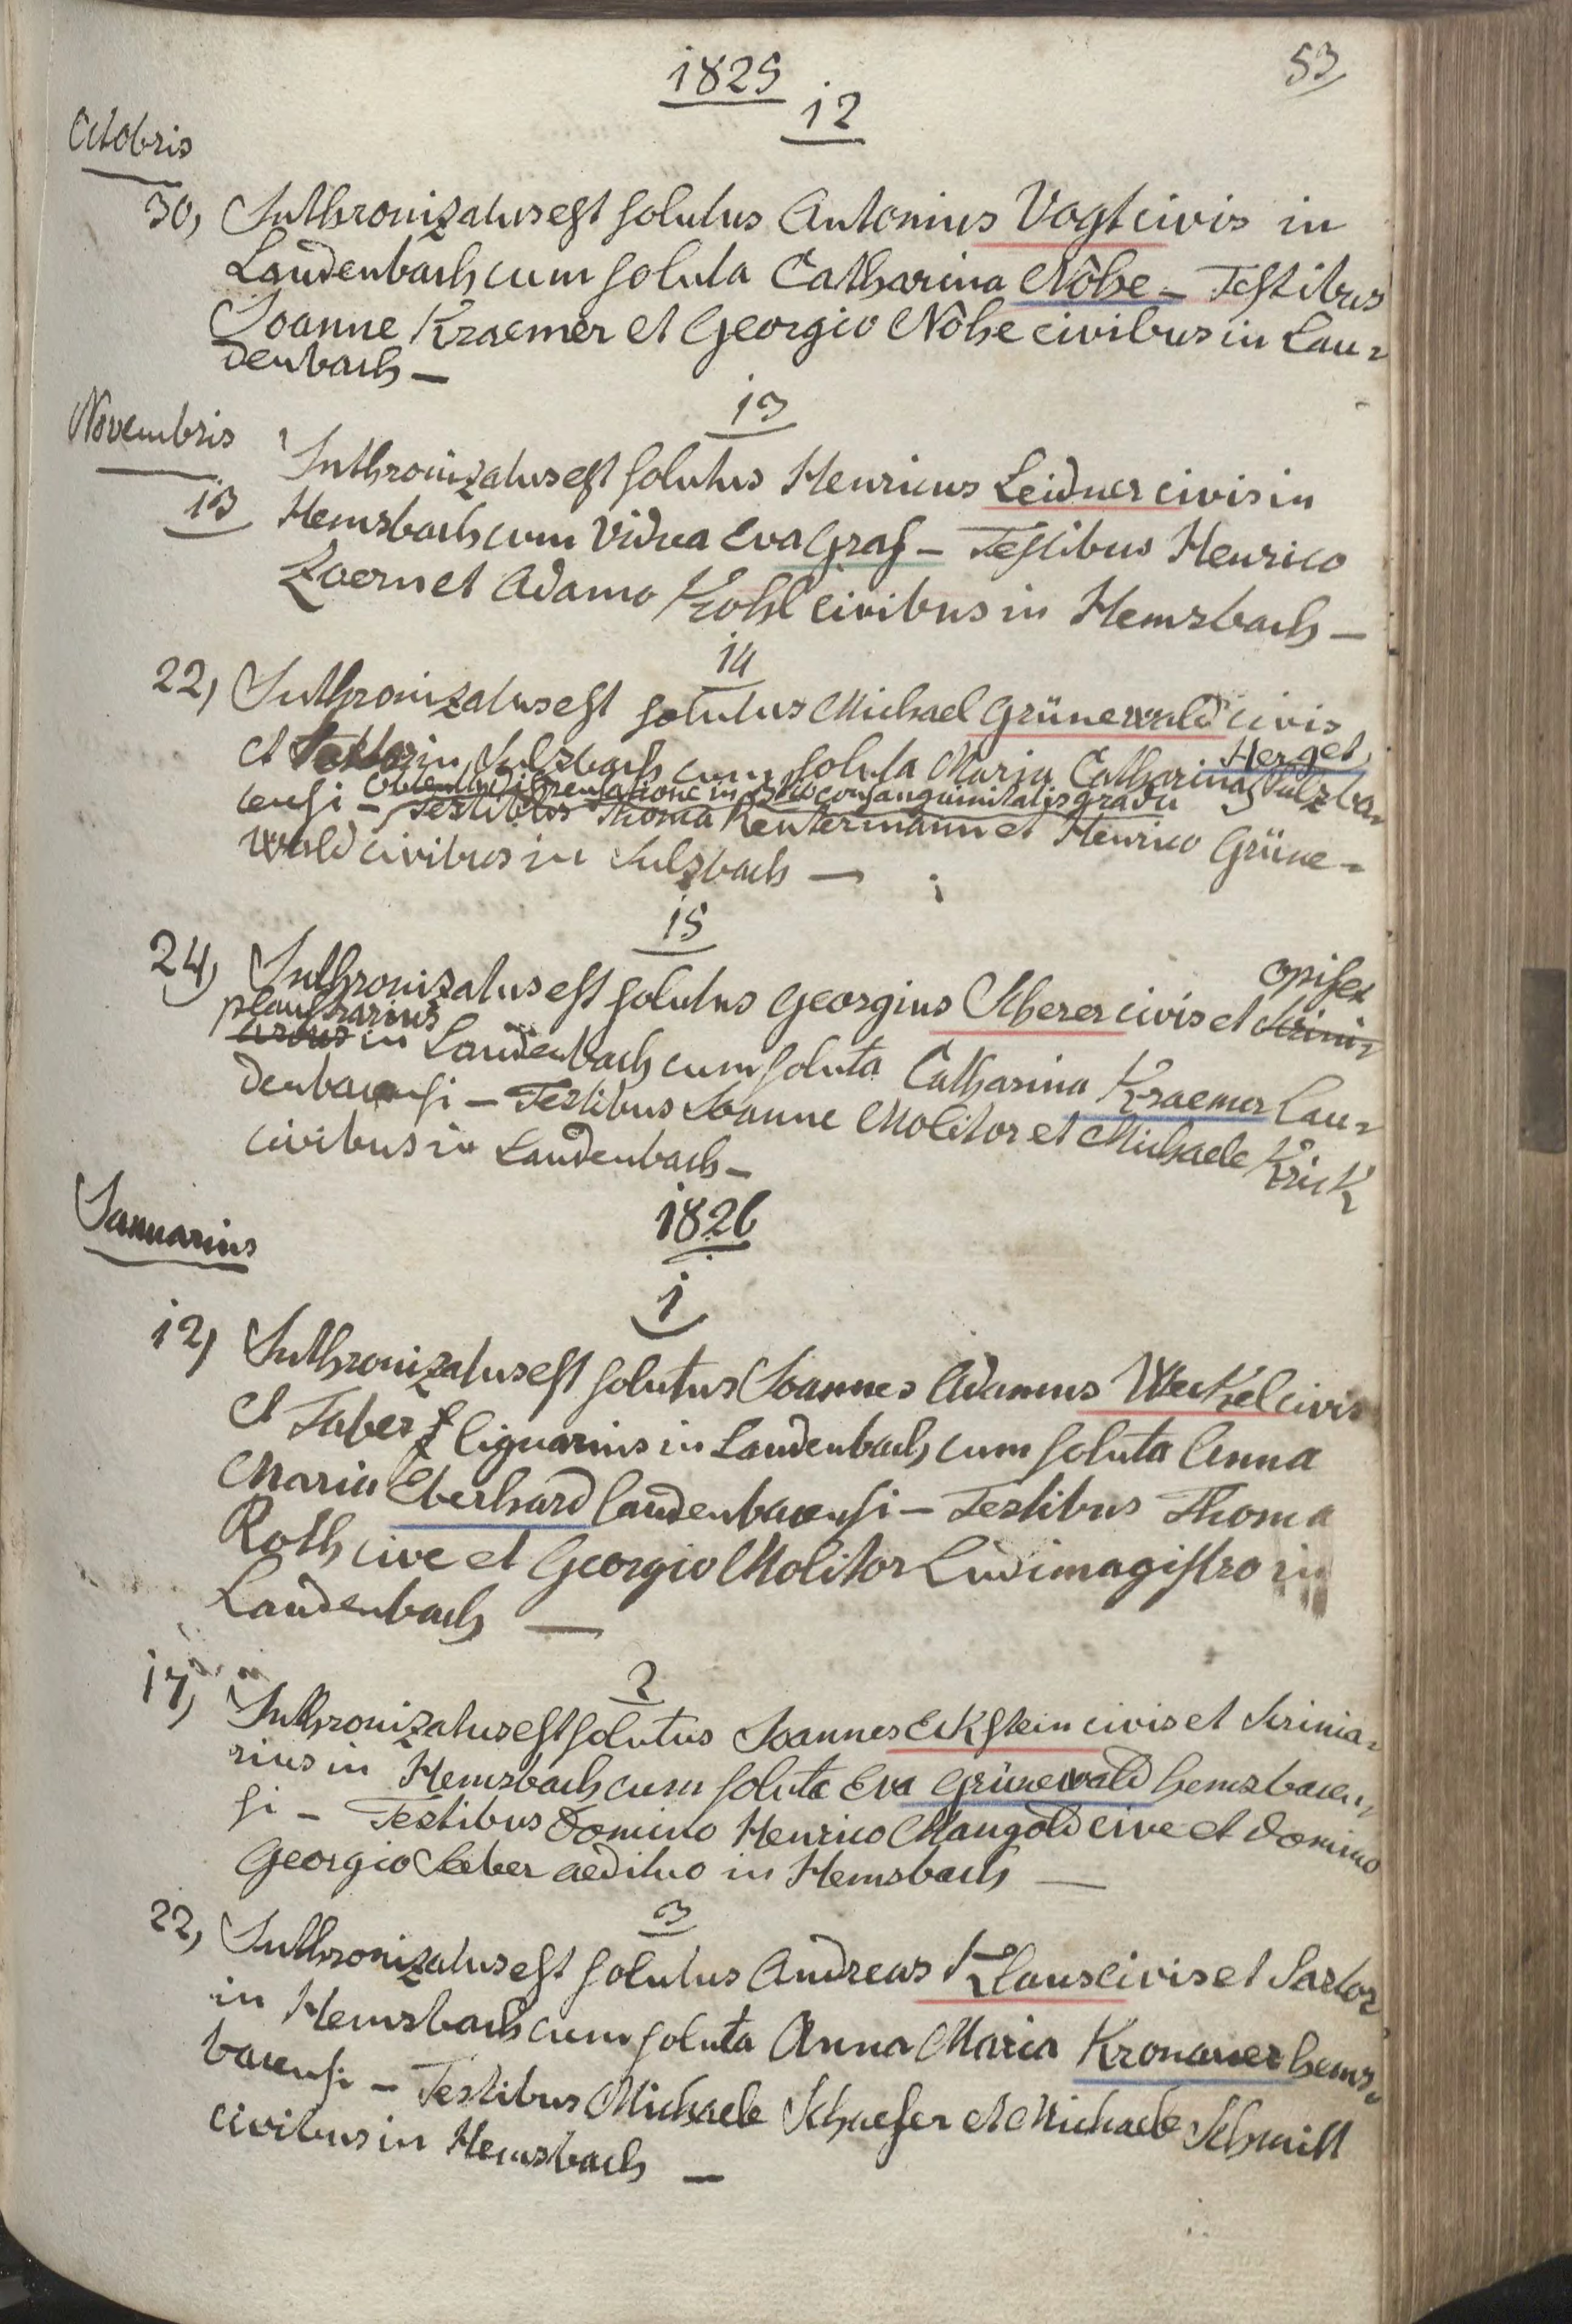 1825
53
12
Octobris
30, Inthronizatus est solutus Antonius Vogt civis in
Laudenbach cum soluta Catharina Nöhe – Testibus
Joanne Kraemer et Georgio Nöhe civibus in Lau=
denbach –
13
Novembris
13 Inthronizatus est solutus Henricus Leidner civis in
Hemsbach cum vidua Eva Graf – Testibus Henrico
Zoern et Adamo Kohl civibus in Hemsbach –
14
22, Inthronizatus est solutus Michael Grünewald civis
Herget
et in Sulzbach cum soluta Maria Catharina Sulzba=
obtenta dispensatione in consanguinitatis gradu
censi – Testibus Thoma Reutermann et Henrico Grüne=
wald civibus in Sulzbach –
15
opifex
24, Inthronizatus est solutus Georgius Scherer civis et Scrini=
plaustrarius
arius in Laudenbach cum soluta Catharina Kraemer Lau=
denbacensi – Testibus Joanne Molitor et Michaele Krick
civibus in Laudenbach –
1826
Januarius
1
12, Inthronizatus est solutus Joannes Adamus Weckel civis
et Faber lignarius in Laudenbach cum soluta Anna
Maria Eberhard Laudenbacensi – Testibus Thoma
Roth cive et Georgio Molitor Ludimagistro in
Laudenbach –
2
17, Inthronizatus est solutus Joannes Eckstein civis et Scrinia=
rius in Hemsbach cum soluta Eva Grünewald hemsbacen=
si – Testibus Domino Henrico Mangold cive et Domino
Georgio Seber aedituo in Hemsbach –
3
22, Inthronizatus est solutus Andreas Klaus civis et Sartor
in Hemsbach cum soluta Anna Maria Kronauer hems=
bacensi – Testibus Michaele Schaefer et Michaele Schmitt
civibus in Hemsbach –